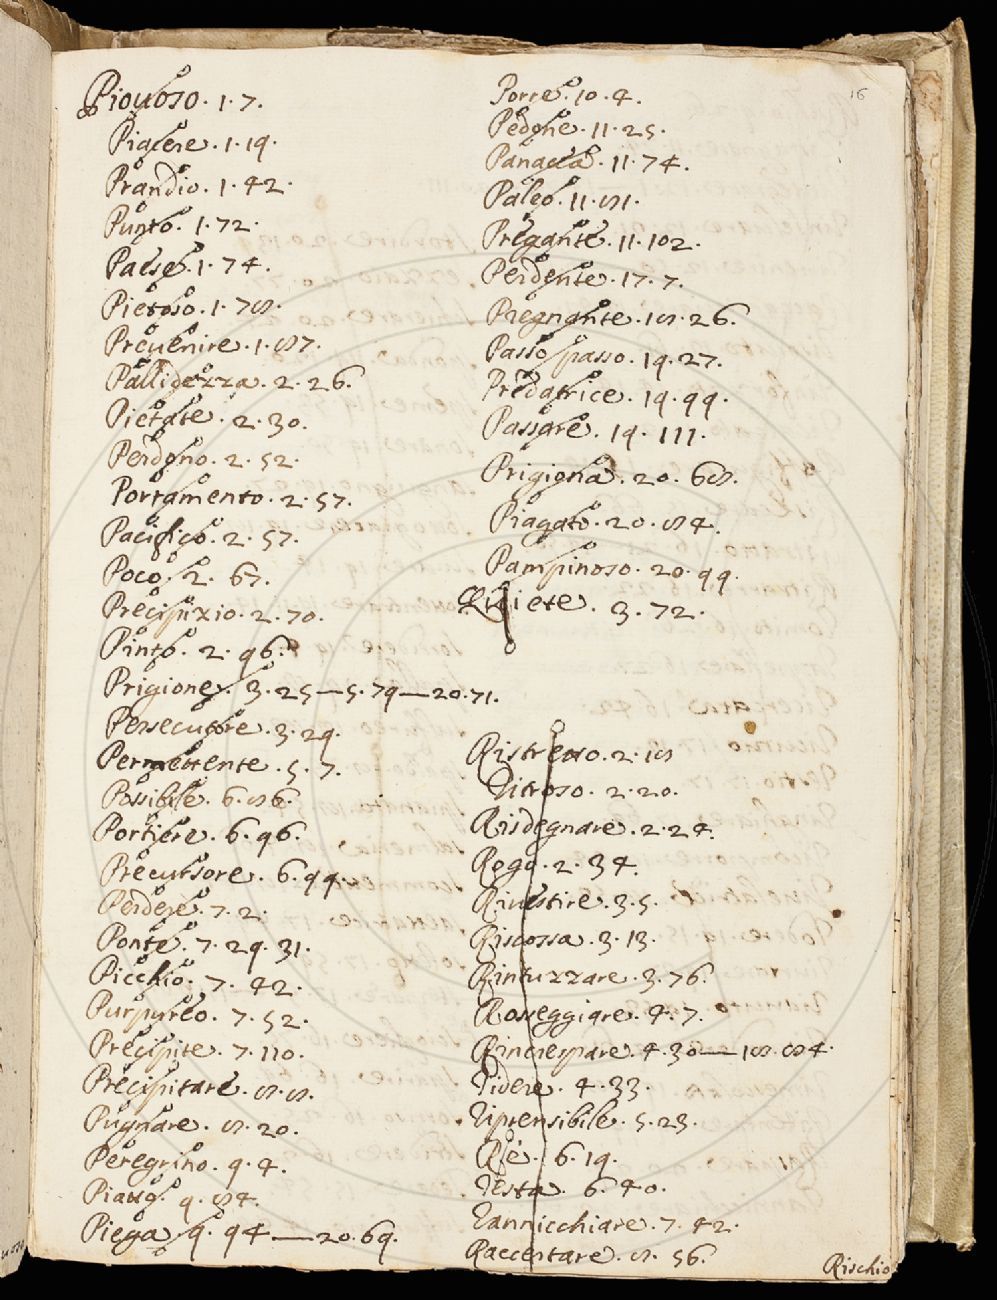 16
Piouoso. 1. 7.
Piacere. 1. 19.
Prandio. 1. 42.
Punto. 1. 72.
Paese. 1. 74.
Pietoso. 1. 78.
Preuenire. 1. 87.
Pallidezza. 2. 26.
Pietate. 2. 30.
Perdono. 2. 52.
Portamento. 2. 57.
Pacifico. 2. 57.
Poco. 2. 67.
Precipizio. 2. 70.
Pinto. 2. 96.
Prigione. 3. 25—5. 79—20. 71.
Persecutore. 3. 29.
Permettente. 5. 7.
Possibile. 6. 86.
Portiere. 6. 96.
Precursore. 6. 99.
Perdere. 7. 2.
Ponte. 7. 29. 31.
Picchio. 7. 42.
Purpureo. 7. 52.
Precipite. 7. 110.
Precipitare. 8. 8.
Pugnare. 8. 20.
Peregrino. 9. 4.
9. 84.
Piega. 9. 94—20. 69.
Porre. 10. 4.
Pedone. 11. 25.
Panacea. 11. 74.
Paleo. 11. 81.
Pregante. 11. 102.
Perdente. 17. 7.
Pregnante. 18. 26.
Passo passo. 19. 27.
Predatrice. 19. 99.
Passare. 19. 111.
Prigiona. 20. 68.
Piagato. 20. 84.
Pampinoso. 20. 99.
Quiete. 3. 72.
Ristretto. 2. 18
Ritroso. 2. 20.
Risdegnare. 2. 24.
Rogo. 2. 34.
Riuestire. 3. 5.
Riscossa. 3. 13.
Rintuzzare. 3. 76.
Rosseggiare. 4. 7.
Rincrespare. 4. 30—18. 84.
Ridere. 4. 33.
Riprensibile. 5. 23.
Rè. 6. 19.
Resta. 6. 40.
Rannicchiare. 7. 42.
Raccertare. 8. 56.
Rischio